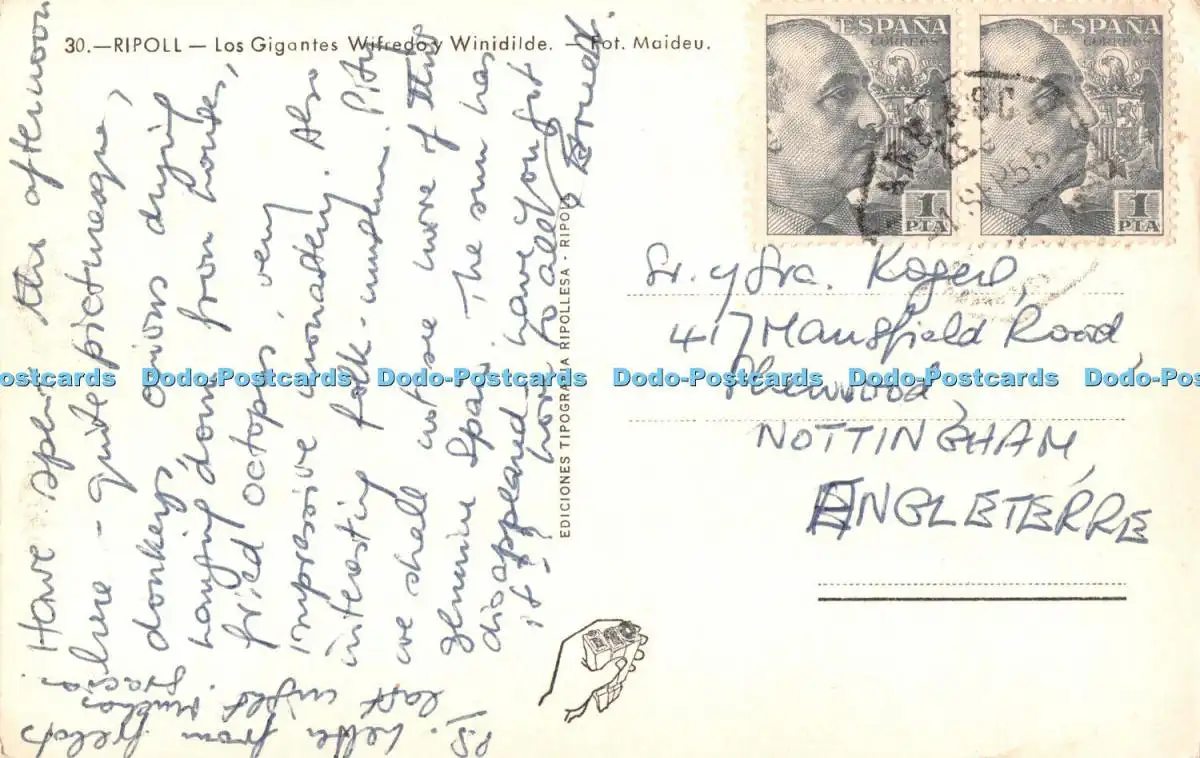 30.—RIPOLL — Los Gigantes Wifredo y Winidilde. — Fot. Maideu.
Have spent the afternoon
here - quite picturesque,
donkeys, onions drying
hanging down from houses,
fried octopus, very
impressive monastery. Also
interesting folk-museum. Pity
we shall not see more of this
genuine Spain. The sun has
disappeared, have you got
it?! Love to all
PS. Letter from
last night. Muchas
gracias!
EDICIONES TIPOGRAFIA RIPOLLESA - RIPOLL
ESPAÑA
CORREOS
1
PTA
ESPAÑA
CORREOS
1
PTA
Sr. y Sra. Rogers,
417 Mansfield Road,
Sherwood,
NOTTINGHAM,
ANGLETERRE
Dodo-Postcards Dodo-Postcards Dodo-Postcards Dodo-Postcards Dodo-Postcards